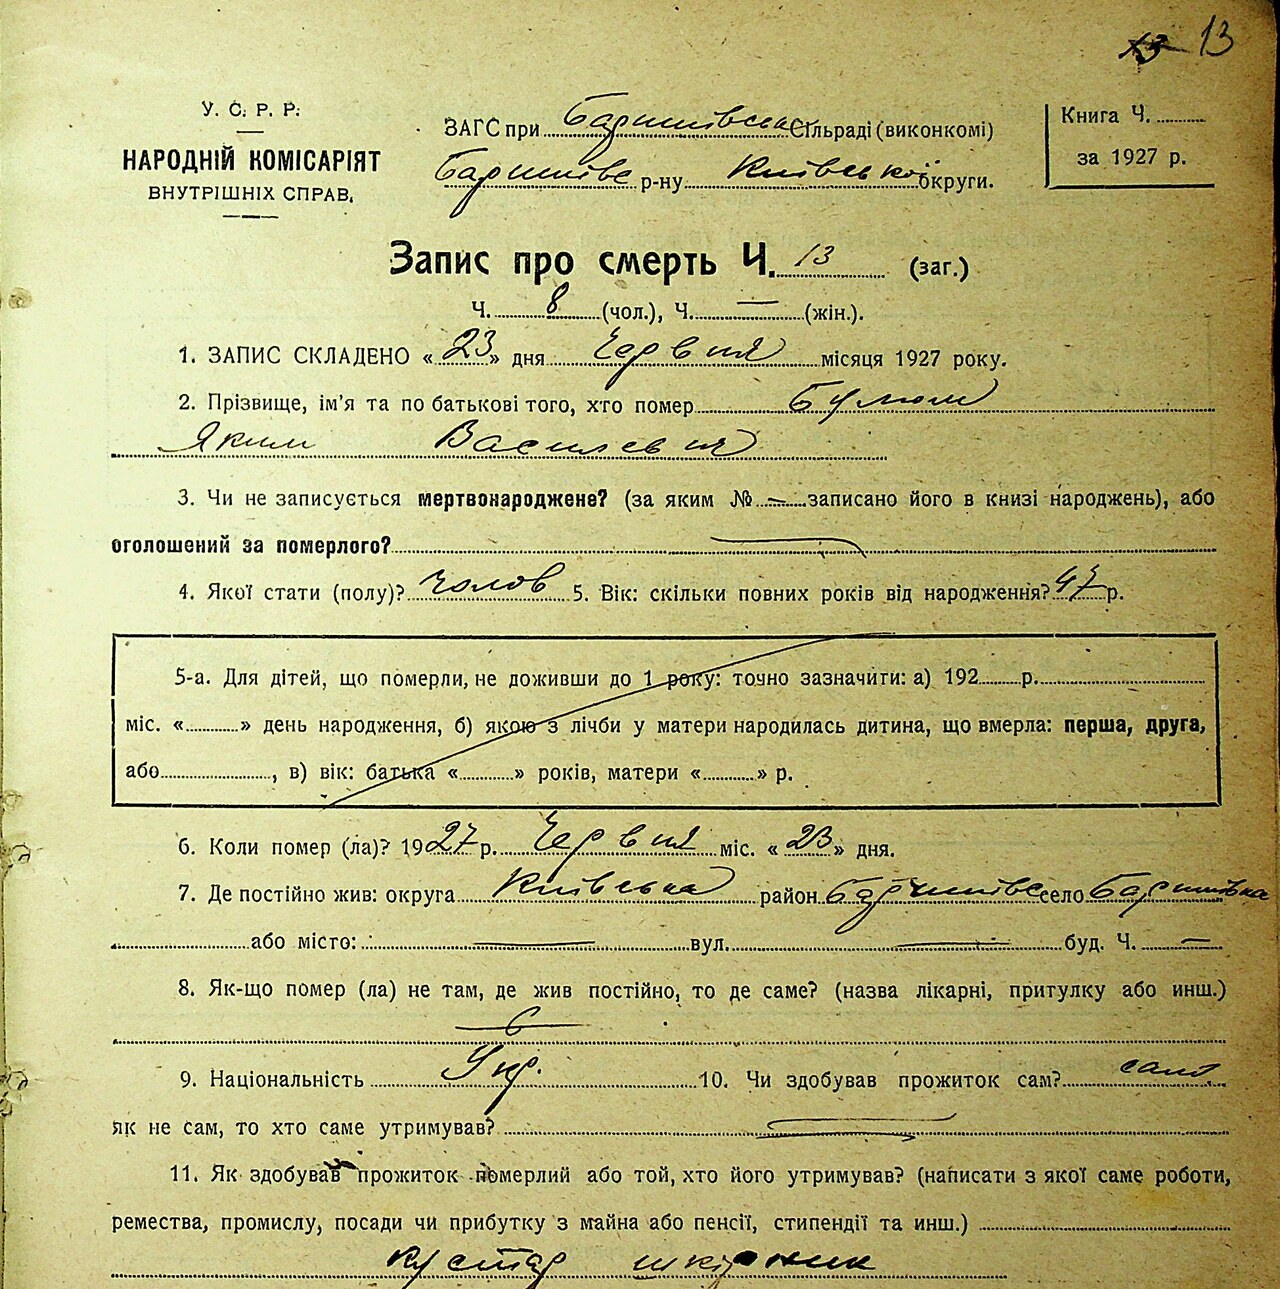 13 13
У. С. Р. Р.
НАРОДНІЙ КОМІСАРІЯТ
ВНУТРІШНІХ СПРАВ.
ЗАГС при Баришівська Сільраді (виконкомі)
Баришівс р-ну Київської округи.
Книга Ч.
за 1927 р.
Запис про смерть Ч. 13 (заг.)
Ч. 8 (чол.), Ч. — (жін.).
1. ЗАПИС СКЛАДЕНО « 23 » дня Червня місяця 1927 року.
2. Прізвище, ім'я та по батькові того, хто помер
Яким Василевич
3. Чи не записується мертвонароджене? (за яким № — записано його в книзі народжень), або
оголошений за померлого? —
4. Якої стати (полу)? Чолов 5. Вік: скільки повних років від народження? 47 р.
5-а. Для дітей, що померли, не доживши до 1 року: точно зазначити: а) 192 р.
міс. « » день народження, б) якою з лічби у матери народилась дитина, що вмерла: перша, друга,
або , в) вік: батька « » років, матери « » р.
6. Коли помер (ла)? 1927 р. Червня міс. « 23 » дня.
7. Де постійно жив: округа Київська район Баришівс село Баришівка
або місто: — вул. — буд. Ч. —
8. Як-що помер (ла) не там, де жив постійно, то де саме? (назва лікарні, притулку або инш.)
9. Національність Укр. 10. Чи здобував прожиток сам? сам
як не сам, то хто саме утримував? —
11. Як здобував прожиток померлий або той, хто його утримував? (написати з якої саме роботи,
ремества, промислу, посади чи прибутку з майна або пенсії, стипендії та инш.)
кустар шкірник